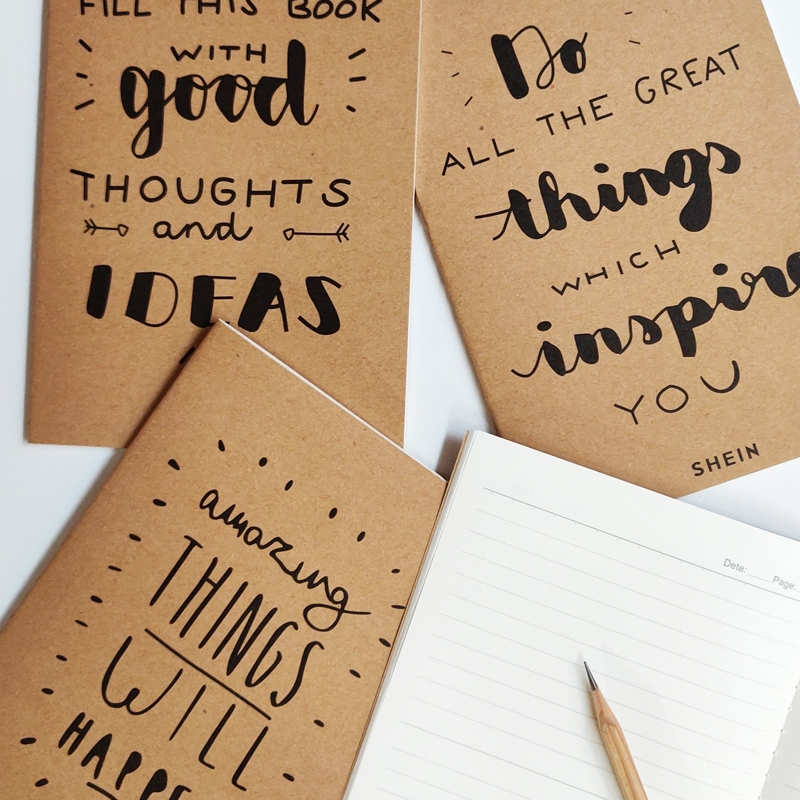 FILL THIS BOOK
WITH
good
THOUGHTS
and
IDEAS
Do
ALL THE GREAT
things
WHICH
inspire
YOU
SHEIN
amazing
THINGS
WILL
HAPPE
Date: Page: